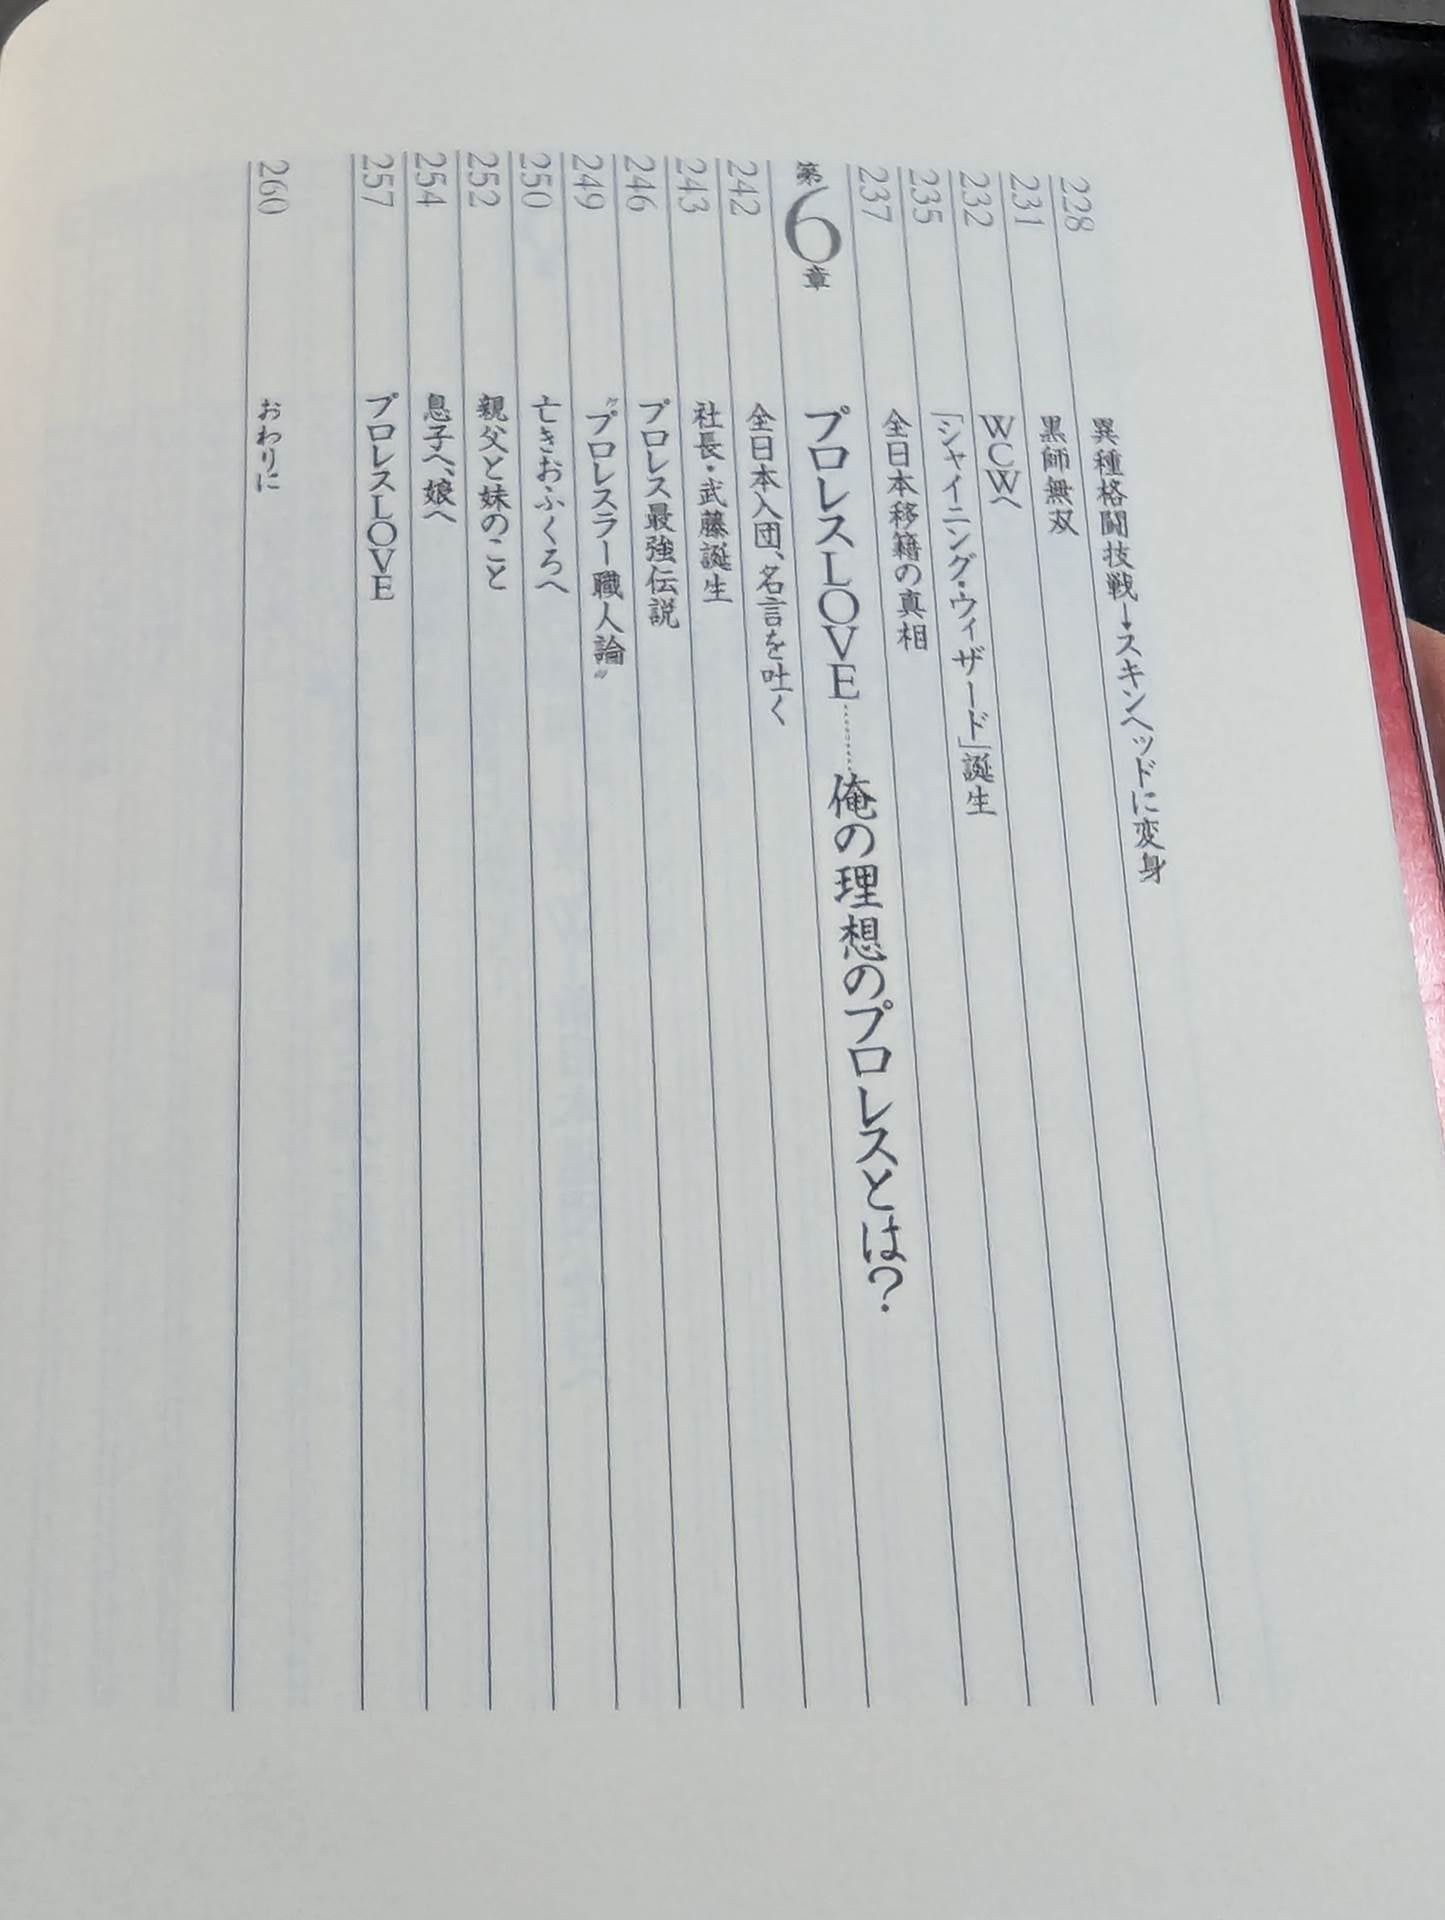 228 異種格闘技戦!・スキンヘッドに変身
231 黒師無双
232 WCWへ
235 「シャイニング・ウィザード」誕生
237 全日本移籍の真相
第6章 プロレスLOVE………俺の理想のプロレスとは?
242 全日本入団、名言を吐く
243 社長・武藤誕生
246 プロレス最強伝説
249 〝プロレスラー職人論〟
250 亡きおふくろへ
252 親父と妹のこと
254 息子へ、娘へ
257 プロレスLOVE
260 おわりに